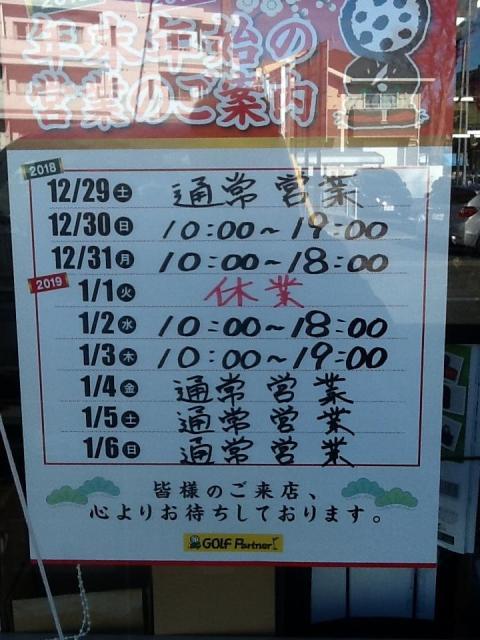 年末年始の
営業のご案内
2018
12/29 土 通常営業
12/30 日 10:00~19:00
12/31 月 10:00~18:00
2019
1/1 火 休業
1/2 水 10:00~18:00
1/3 木 10:00~19:00
1/4 金 通常営業
1/5 土 通常営業
1/6 日 通常営業
皆様のご来店、
心よりお待ちしております。
GOLF Partner